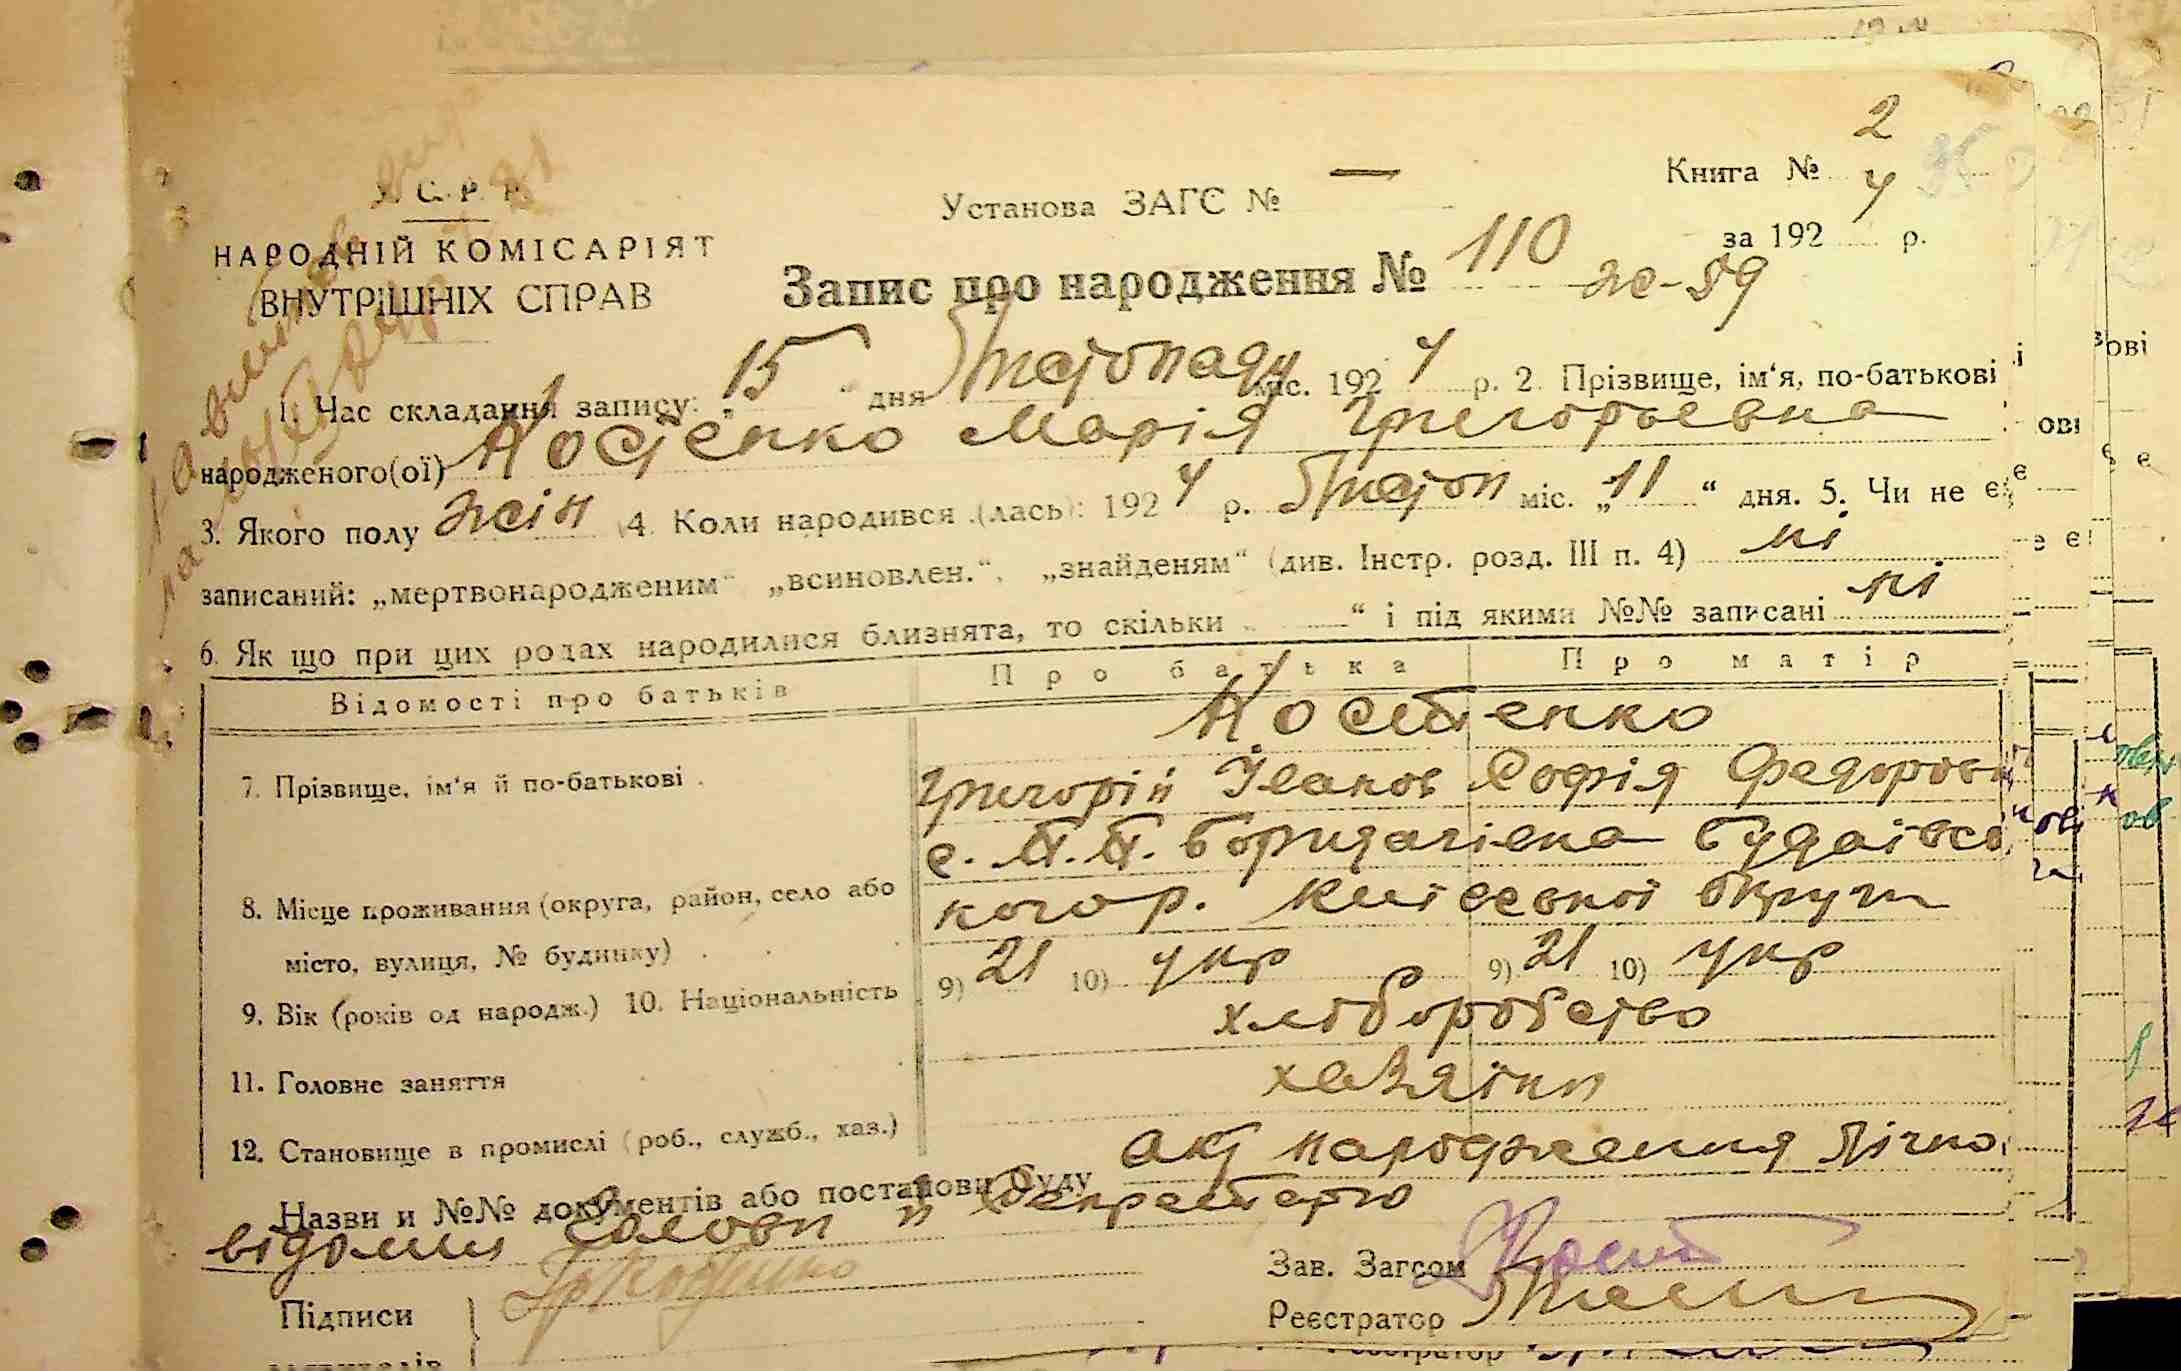 2
У. С. Р. Р.
Установа ЗАГС № — Книга № 4
НАРОДНІЙ КОМІСАРІЯТ
ВНУТРІШНІХ СПРАВ
за 192 р.
Запис про народження № 110 ж-59
1. Час складання запису: „15“ дня Листопаду міс. 1924 р. 2. Прізвище, ім‘я, по-батькові
народженого(ої) Костенко Марія Григорьевна
3. Якого полу жін 4. Коли народився (лась): 1924 р. Листоп міс. „11“ дня. 5. Чи не є
записаний: „мертвонародженим“ „всиновлен.“, „знайденям“ (див. Інстр. розд. III п. 4) ні
6. Як що при цих родах народилися близнята, то скільки „ —“ і під якими №№ записані ні
Відомості про батьків Про батька Про матір
Костенко
7. Прізвище, ім‘я й по-батькові Григорій Іванов Софія Федоровн
с. П. П. Борщагівка Будаївсь
8. Місце проживання (округа, район, село або когор. Київської округи
місто, вулиця, № будинку)
9. Вік (років од народж.) 10. Національність 9) 21 10) укр 9) 21 10) укр
11. Головне заняття хліборобство
12. Становище в промислі (роб., служб., хаз.) хазяїни
Назви и №№ документів або постанови Суду акт народження Лічно
відомий Голови и Секретарю
Гр Костенко
Зав. Загсом Кост
Підписи
Реєстратор